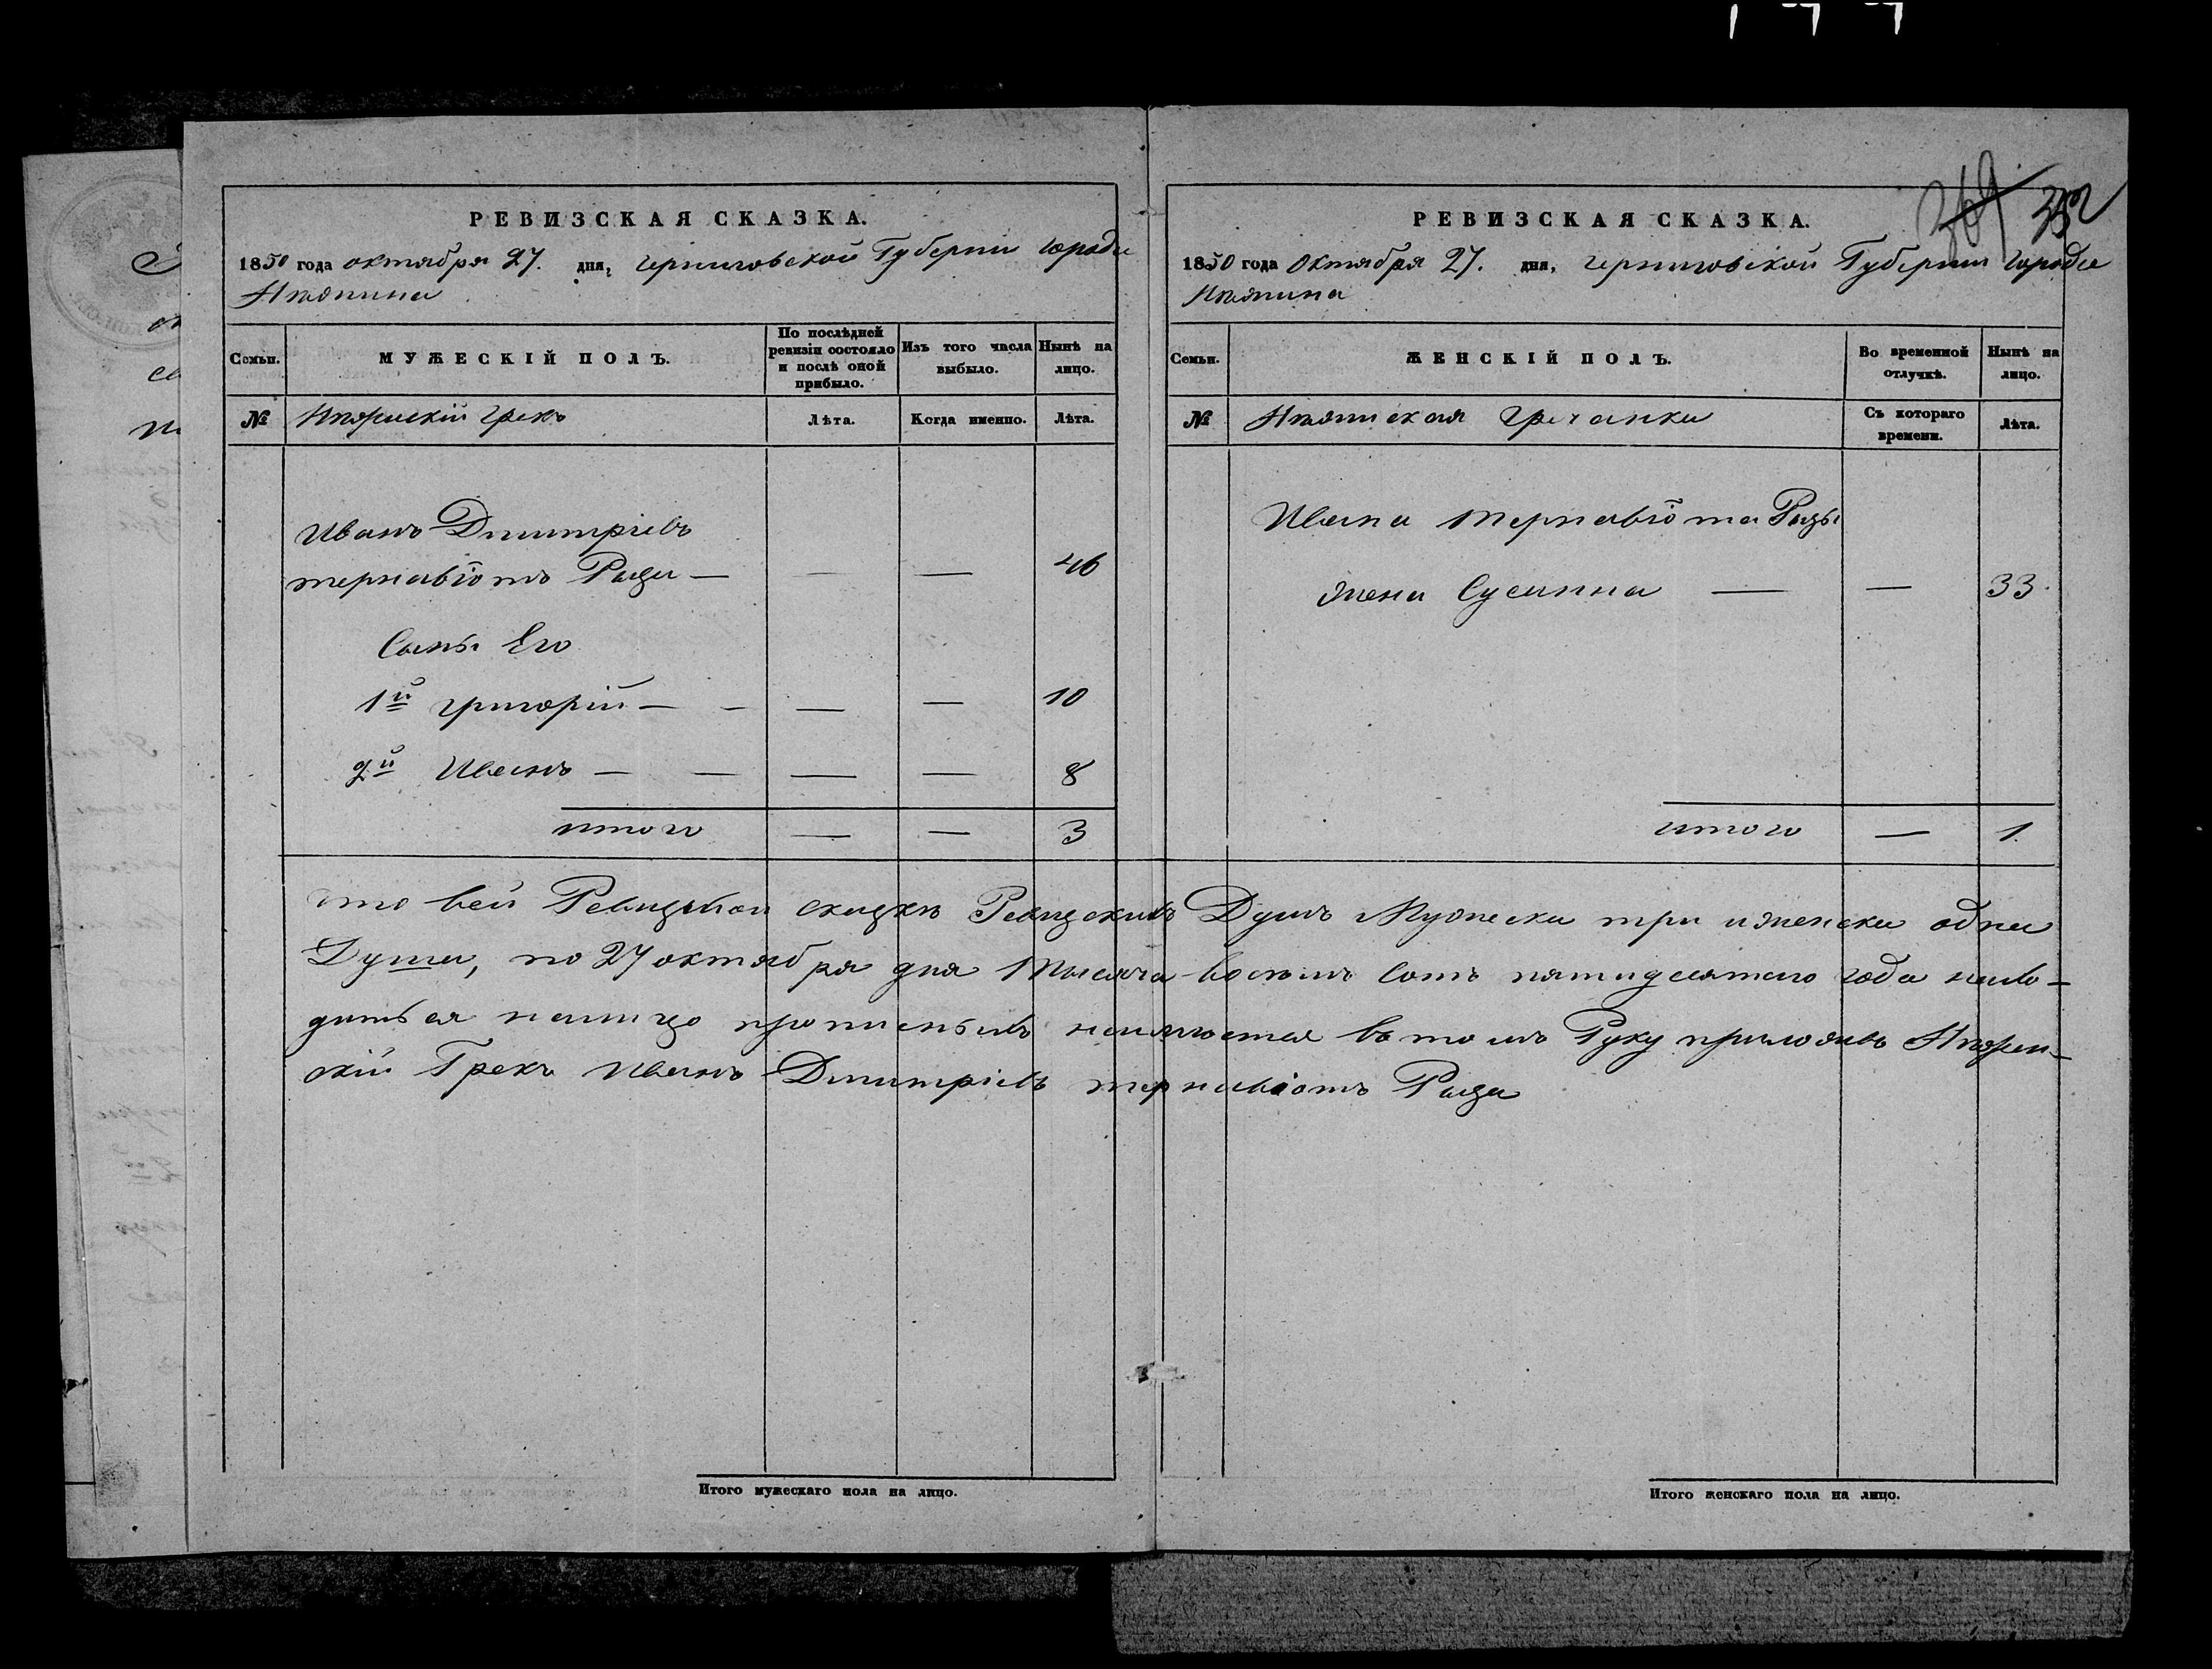 369 352
РЕВИЗСКАЯ СКАЗКА.
1850 года октября 27. дня, черниговской Губернии города
Нѣжина
Семьи.
МУЖЕСКІЙ ПОЛЪ.
По послѣдней ревизіи состояло и послѣ оной прибыло.
Изъ того числа выбыло.
Нынѣ на лицо.
№ Нѣжинскій грекъ
Лѣта.
Когда именно.
Лѣта.
Иванъ Дмитріевъ
тернавіотъ Раза — — — 46
Сыны Его
1й григорій — — — — 10
2й Иванъ — — — — 8
итого — — 3
РЕВИЗСКАЯ СКАЗКА.
1850 года Октября 27. дня, черниговской Губернии города
Нѣжина
Семьи.
ЖЕНСКІЙ ПОЛЪ.
Во временной отлучкѣ.
Нынѣ на лицо.
№ Нѣжинская гречанка
Съ котораго времени.
Лѣта.
Ивана тернавіота Разы
жена Сусанна — — 33
итого — 1.
что всей Ревизской сказкѣ Ревизскихъ Душъ Мужеска три и женска одна
Душа, по 27 октября дня 1 тысяча восемь сотъ пятидесятого года нахо-
диться налицо прописныхъ неимѣется въ томъ Руку приложивъ Нѣжин-
скій Грекъ Иванъ Дмитріевъ тернавіотъ Раза
Итого мужескаго пола на лицо.
Итого женскаго пола на лицо.